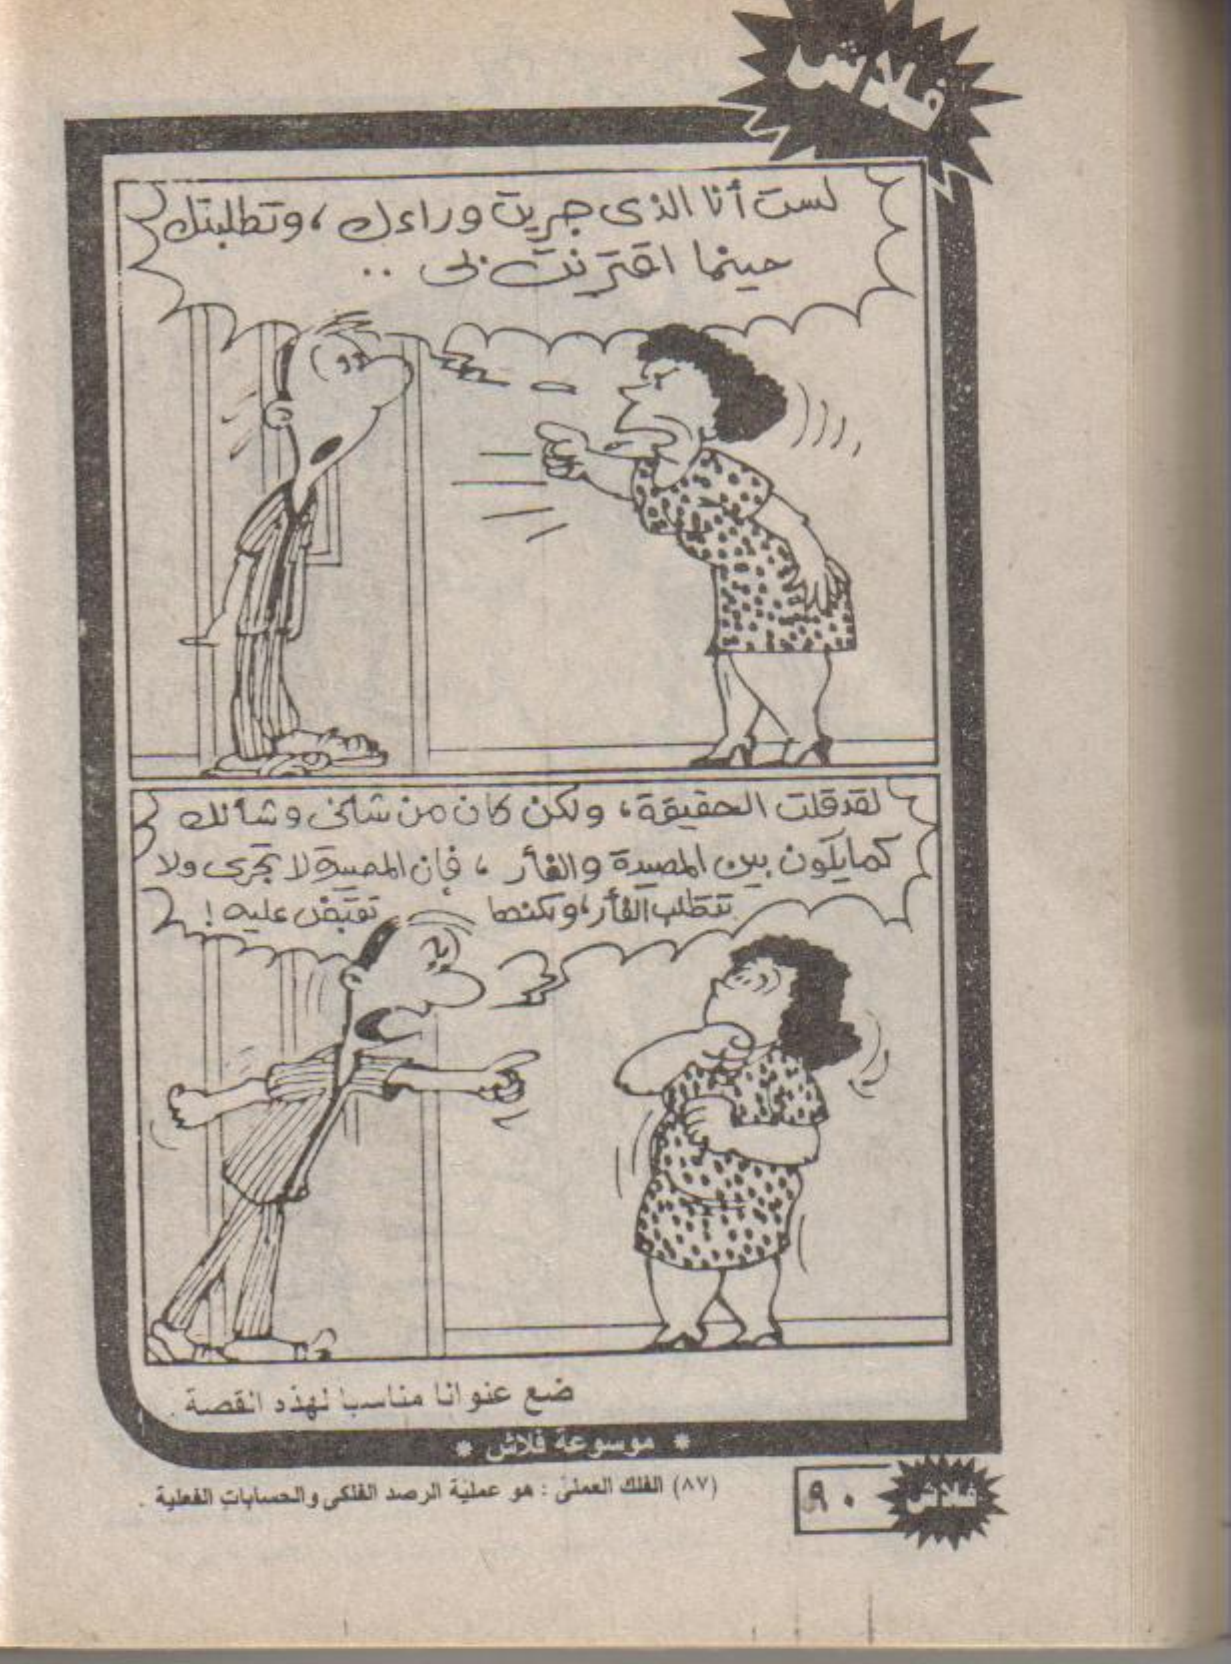 فلاش
لست أنا الذى جريت وراءك ، وتطلبتك
حينما اقترنت بى ..
لقد قلت الحقيقة ، ولكن كان من شأنى وشأنك
كما يكون بين المصيدة والفأر ، فإن المصيدة لا تجرى ولا
تتطلب الفأر ، ولكنها تقبض عليه !
ضع عنوانا مناسبا لهذه القصة .
* موسوعة فلاش *
(٨٧) الفلك العملى : هو عملية الرصد الفلكى والحسابات الفعلية .
فلاش ٩٠